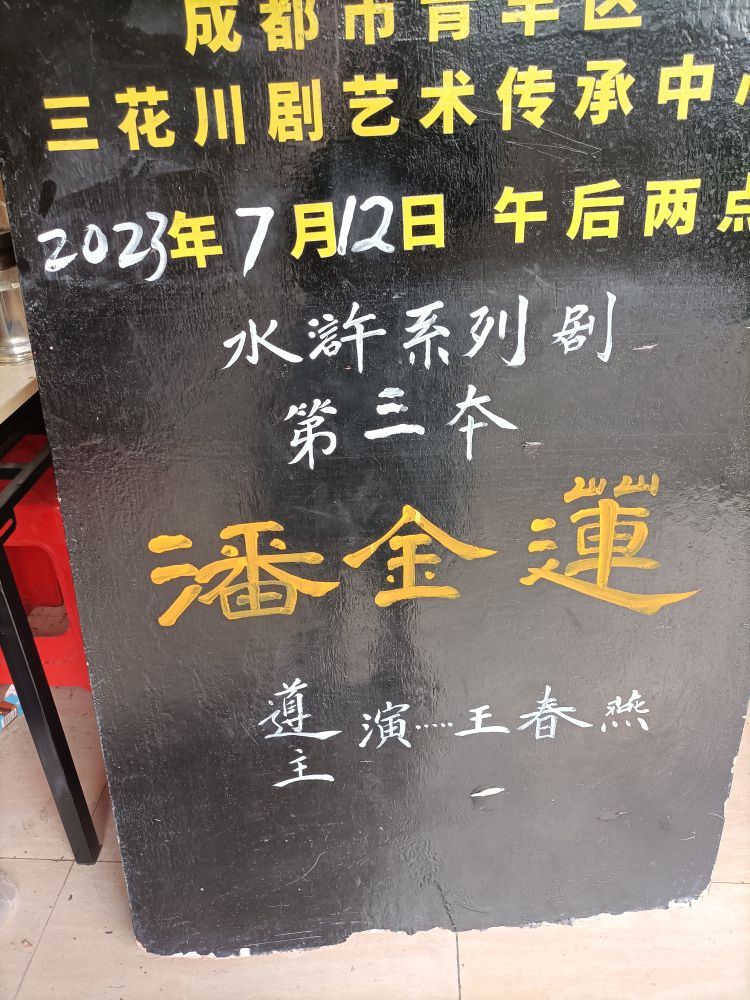 成都市青羊区
三花川剧艺术传承中心
2023年7月12日 午后两点
水滸系列剧
第三本
潘金蓮
導主 演……王春燕